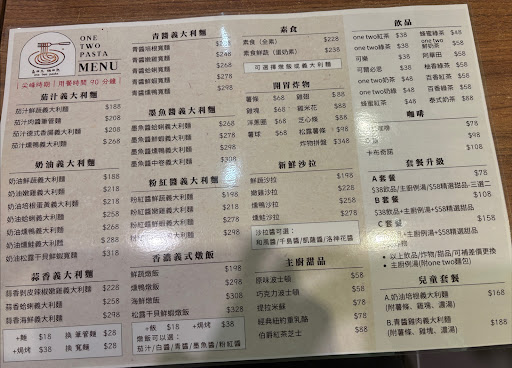 ONE
TWO
PASTA
MENU
尖峰時期 | 用餐時間 90 分鐘
茄汁義大利麵
茄汁鮮蔬義大利麵 $188
茄汁肉醬筆管麵 $208
茄汁德式香腸義大利麵 $218
茄汁燻鴨義大利麵 $268
奶油義大利麵
奶油鮮蔬義大利麵 $188
奶油嫩雞義大利麵 $208
奶油培根蛋黃義大利麵 $218
奶油蛤蜊義大利麵 $258
奶油燻鴨義大利麵 $268
奶油燻鮭義大利麵 $288
奶油松露干貝鮮蝦寬麵 $318
蒜香義大利麵
蒜香剝皮辣椒嫩雞義大利麵 $228
蒜香蛤蜊義大利麵 $258
蒜香海鮮義大利麵 $298
+麵 $18 換 筆管麵 $28
+焗烤 $38 換 寬麵 $28
青醬義大利麵
青醬培根寬麵
青醬嫩雞寬麵 $248
青醬蛤蜊寬麵 $268
青醬燻鴨寬麵 $278
青醬燻鮭寬麵 $298
墨魚醬義大利麵
墨魚醬蛤蜊義大利麵 $268
墨魚醬嫩雞義大利麵 $268
墨魚醬燻鴨義大利麵 $278
墨魚醬中卷義大利麵 $308
粉紅醬義大利麵
粉紅醬鮮蔬義大利麵 $198
粉紅醬嫩雞義大利麵 $218
粉紅醬蛤蜊義大利麵 $268
粉紅醬燻鴨義大利麵 $278
粉紅醬燻鮭義大利麵 $298
香濃義式燉飯
鮮蔬燉飯 $198
燻鴨燉飯 $298
海鮮燉飯 $308
松露干貝鮮蝦燉飯 $338
+飯 $18 +焗烤 $38
燉飯可以選：
茄汁/白醬/青醬/墨魚醬/粉紅醬
素食
素食（全素） $238
素食鮮蔬（蛋奶素） $238
可選擇燉飯或義大利麵
開胃炸物
薯條 $68 甜甜 $
雞塊 $68 雞米花
洋蔥圈 $68 芝心條 $88
薯球 $68 松露薯條 $98
炸物拼盤 $348
新鮮沙拉
鮮蔬沙拉 $158
嫩雞沙拉 $178
燻鴨沙拉 $258
燻鮭沙拉 $278
沙拉醬可選：
和風醬/千島醬/凱薩醬/洛神花醬
主廚甜品
原味波士頓 $58
巧克力波士頓 $58
提拉米蘇 $58
經典紐約重乳酪 $78
伯爵紅茶芝士 $88
飲品
one two紅茶 $38 蜂蜜綠茶 $48
one two綠茶 $38 one two
可樂 $38 鮮奶茶 $58
可爾必思 $38 阿華田 $58
one two奶茶 $48 柚香綠茶 $58
one two奶綠 $48 百香紅茶 $58
蜂蜜紅茶 $48 百香綠茶 $58
泰式奶茶 $88
咖啡
$78
$98
卡布奇諾 $108
套餐升級
A 套餐 $78
$38飲品+主廚例湯/$58精選甜品-三選二
B 套餐 $108
$38飲品+主廚例湯+$58精選甜品
C 套餐 $158
• 以上飲品/炸物/甜品/可補差價更換
• 主廚例湯(附one two麵包)
兒童套餐
A.奶油培根義大利麵 $168
(附薯條、雞塊、濃湯)
B.青醬雞肉義大利麵 $188
(附薯條、雞塊、濃湯)